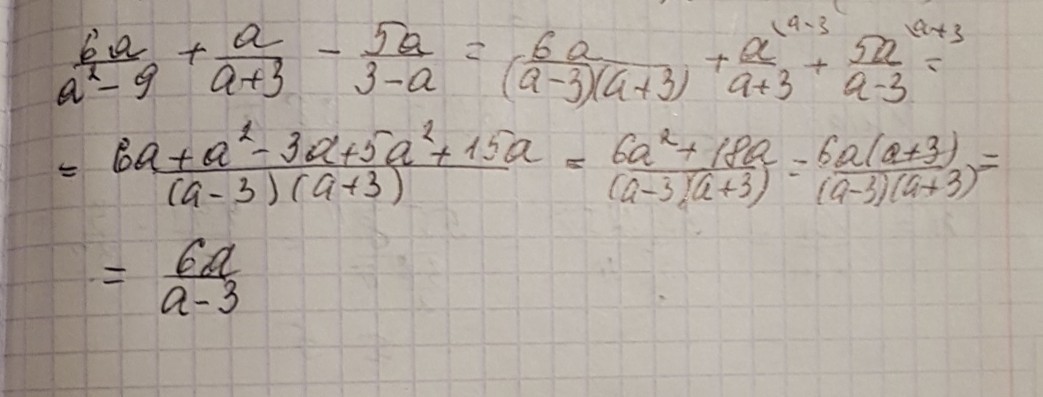 6a/(a²-9) + a/(a+3) - 5a/(3-a) = 6a/((a-3)(a+3)) + a\ᵃ⁻³/(a+3) + 5a\ᵃ⁺³/(a-3) =
= (6a+a²-3a+5a²+15a)/((a-3)(a+3)) = (6a²+18a)/((a-3)(a+3)) = 6a(a+3)/((a-3)(a+3)) =
= 6a/(a-3)